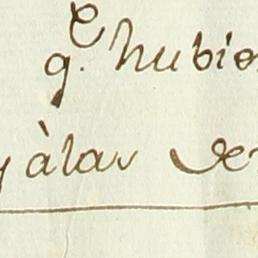 q.e hubie
y à las de